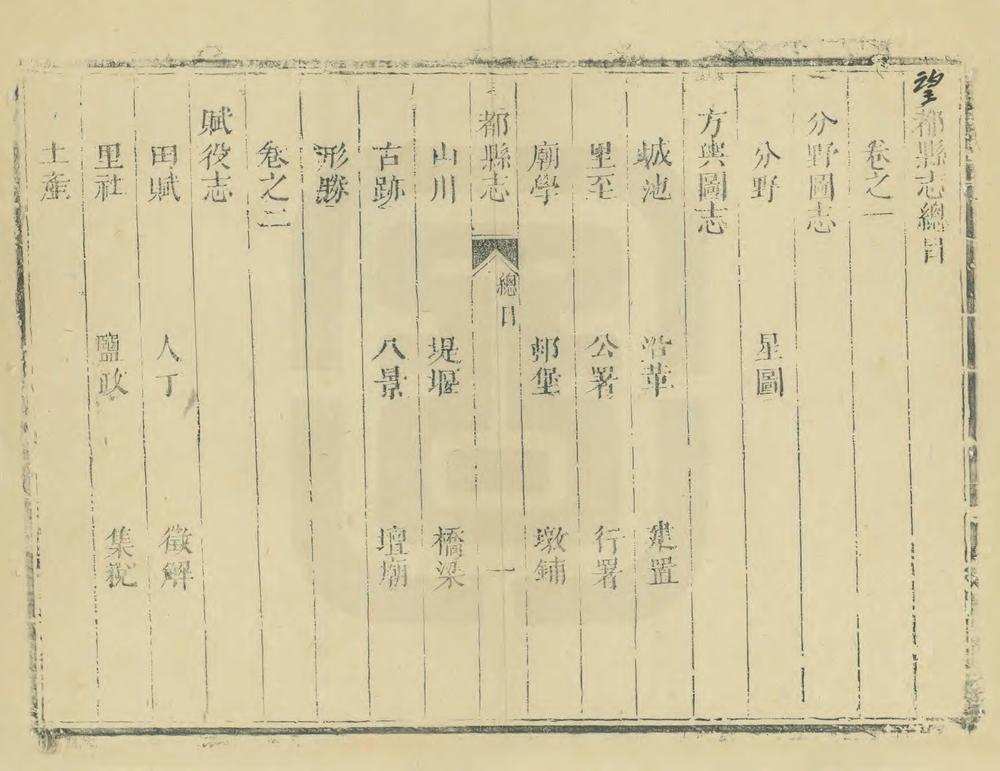 望都縣志總目
卷之一
分野圖志
分野 星圖
方輿圖志
城池 沿革 建置
里至 公署 行署
廟學 邨堡 墩鋪
都縣志 總目 一
山川 堤堰 橋梁
古跡 八景 壇廟
形勝
卷之二
賦役志
田賦 人丁 徵解
里社 鹽政 集稅
土產